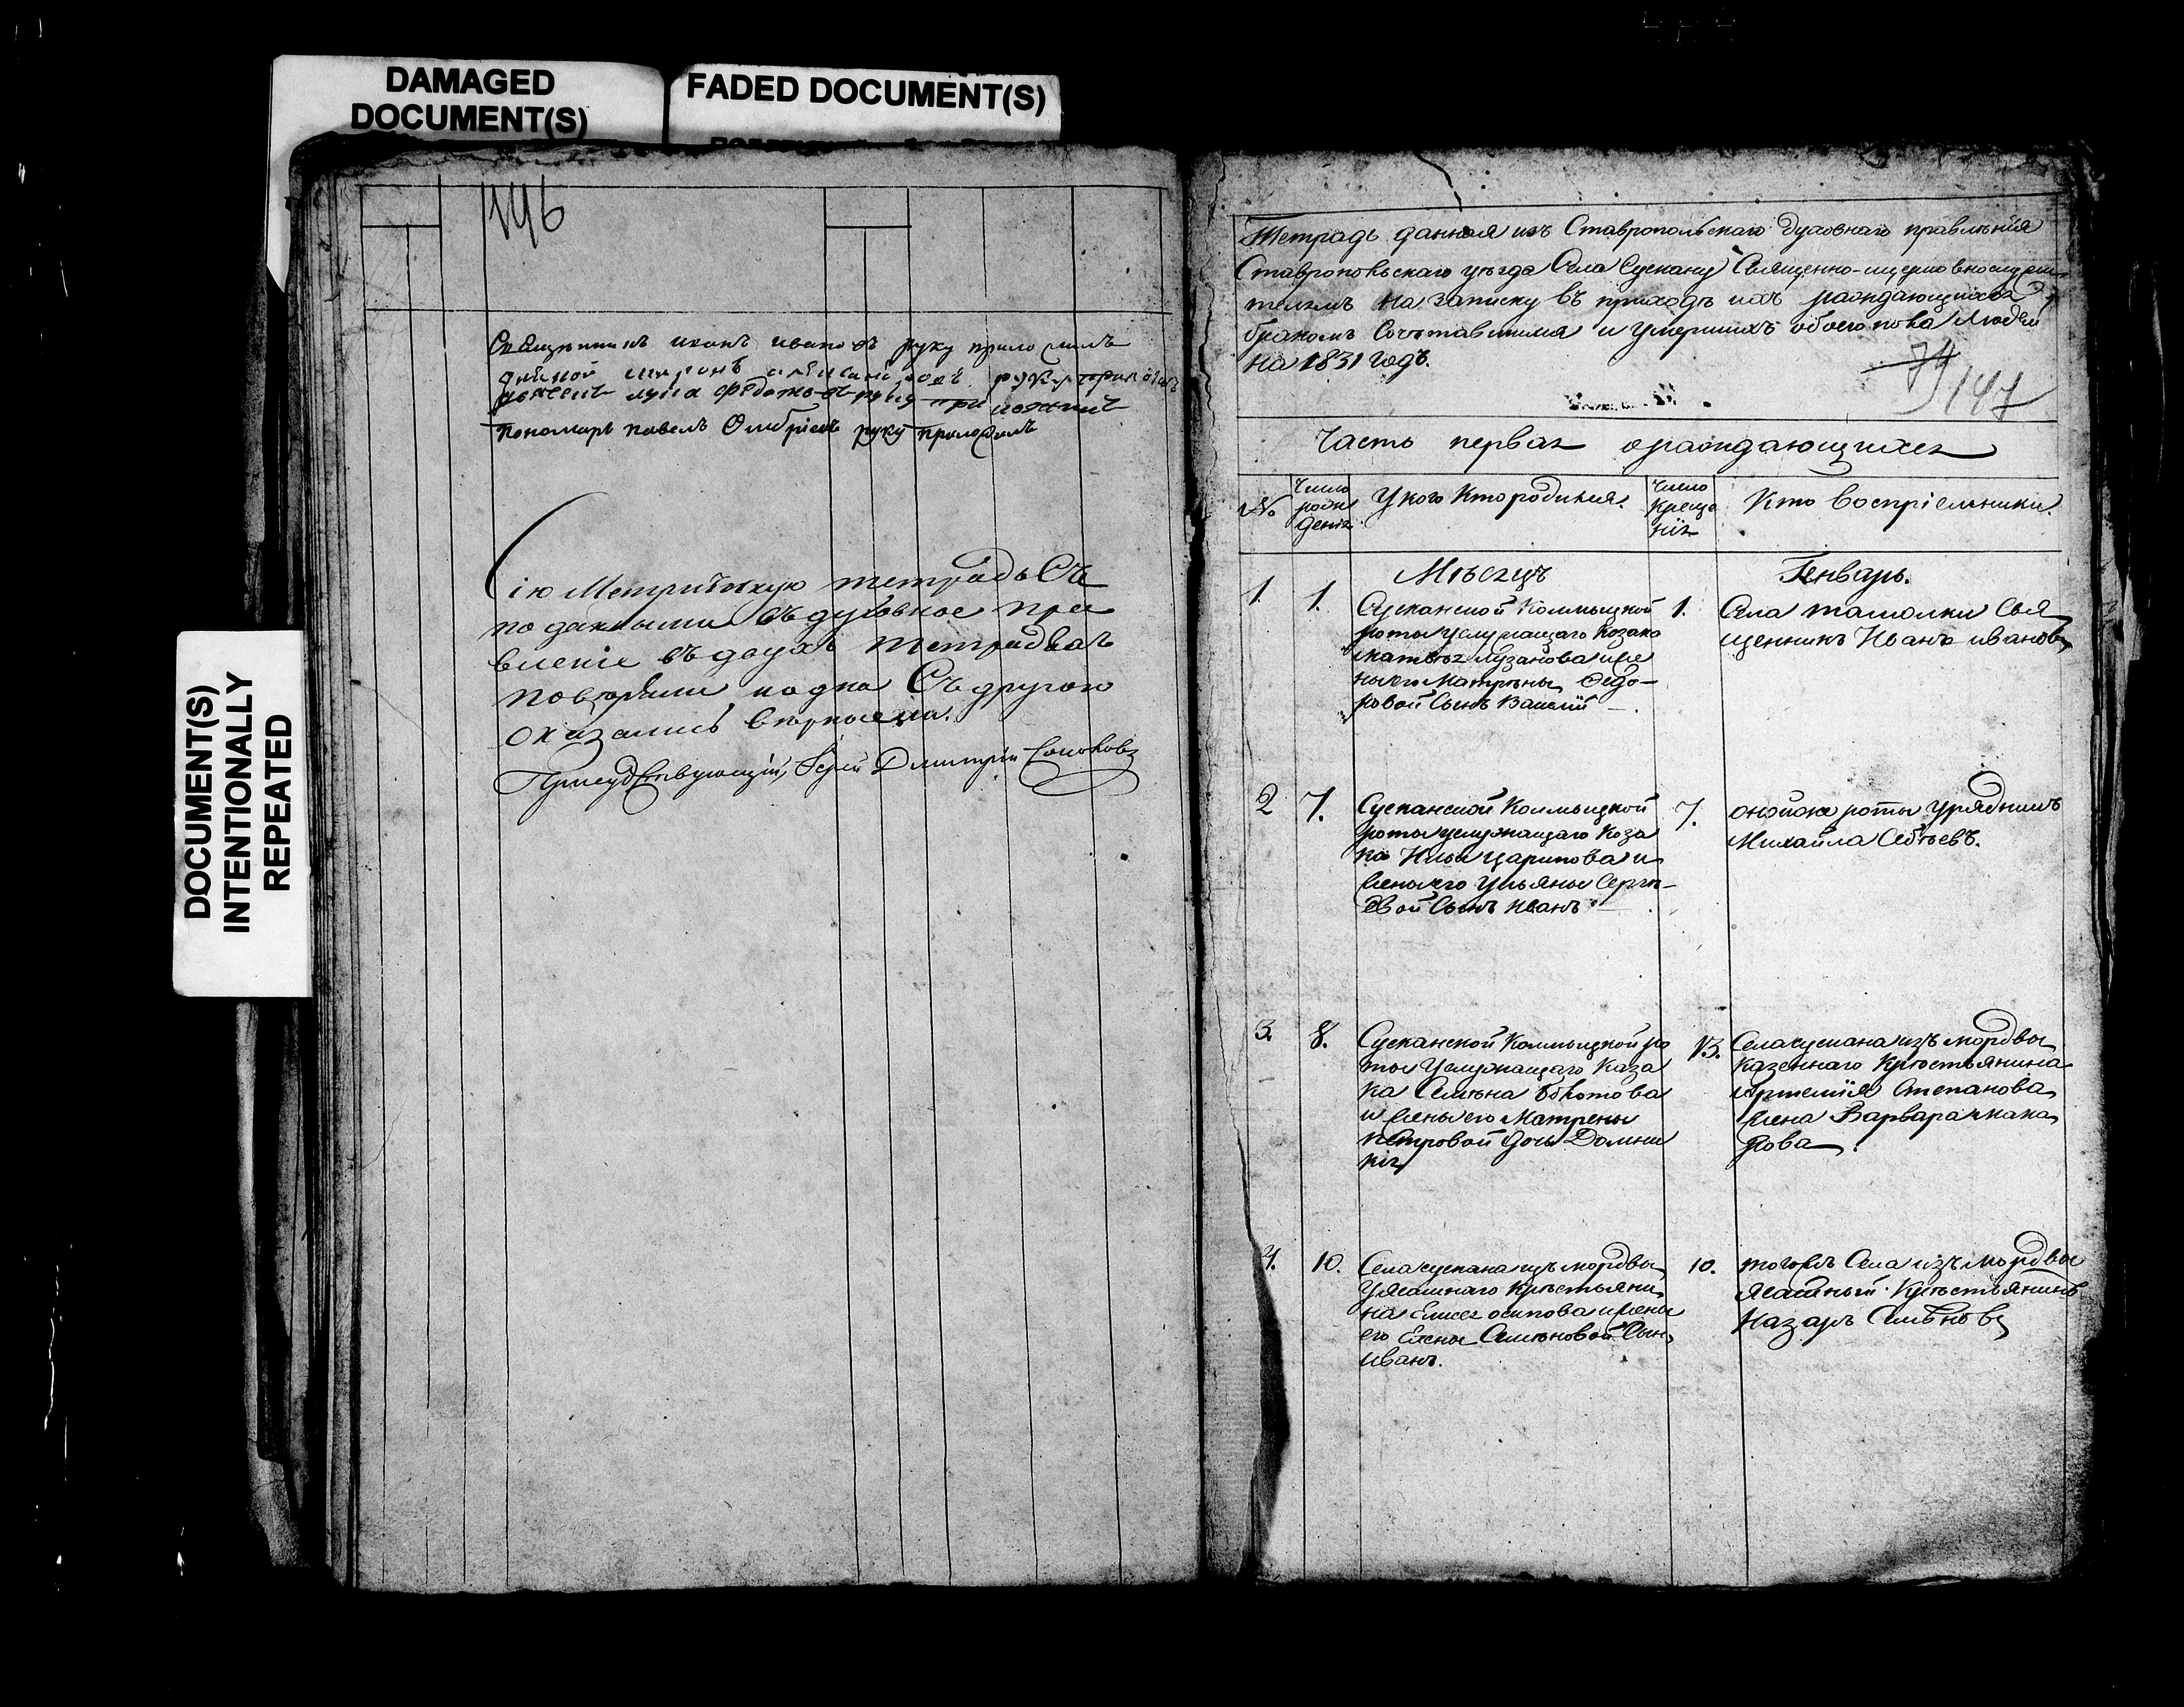 DAMAGED
DOCUMENT(S)
FADED DOCUMENT(S)
DOCUMENT(S)
INTENTIONALLY
REPEATED
146
Священникъ иванъ ивановъ руку приложилъ
руку приложилъ
лука федотовъ руку приложилъ
пономарь павелъ руку приложилъ
Сію Метрическую тетрадь Съ
поданными въ духовное пра
вленіе въ двухъ тетрадкахъ
повѣряли и одна Съ другою
оказались
Присудствующій, Іерей Дмитрій Соколовъ
Тетрадь данная изъ Ставропольскаго духовнаго правленія
Ставропольскаго уѣзда Села Сускану Священно-церковнослужи-
телямъ на записку въ приходѣ ихъ раждающихся,
бракомъ Сочетавшихся и умершихъ обоего пола людей
на 1831 годъ.
74
147
Часть первая ораждающихся
№ Число рож деніа Укого Кто родился. Число Креще нія Кто Воспріемники.
Мѣсяцъ Генварь.
1. 1. Сусканской Колмыцкой
роты услужащаго Козака
Лузанова и же
ны его Матрены Ѳедо-
ровой Сынъ Василій
1. Села ташолки Свя
щенникъ Иванъ ивановъ
2 7. Сусканской Колмыцкой
роты услужащаго Коза
ка Ильи Царипова и
жены его Ульяны Сергѣ-
евой Сынъ Иванъ
7. оной же роты Урядникъ
Михайла
3. 8. Сусканской Колмыцкой ро
ты Услужащаго Каза
ка Семена
и жены его Матрены
петровой дочь Домни
кія
13. Села сускана изъ мордвы
казеннаго Крестьянина
Артемія Степанова
жена Варвара мака
рова.
4. 10. Села сускана изъ мордвы
Уясашнаго крестьяни
на Елисея осипова и жены
его Елены Семеновой Сынъ
иванъ.
10. тогожъ Села изъ мордвы
ясашный Крестьянинъ
Назаръ Семеновъ